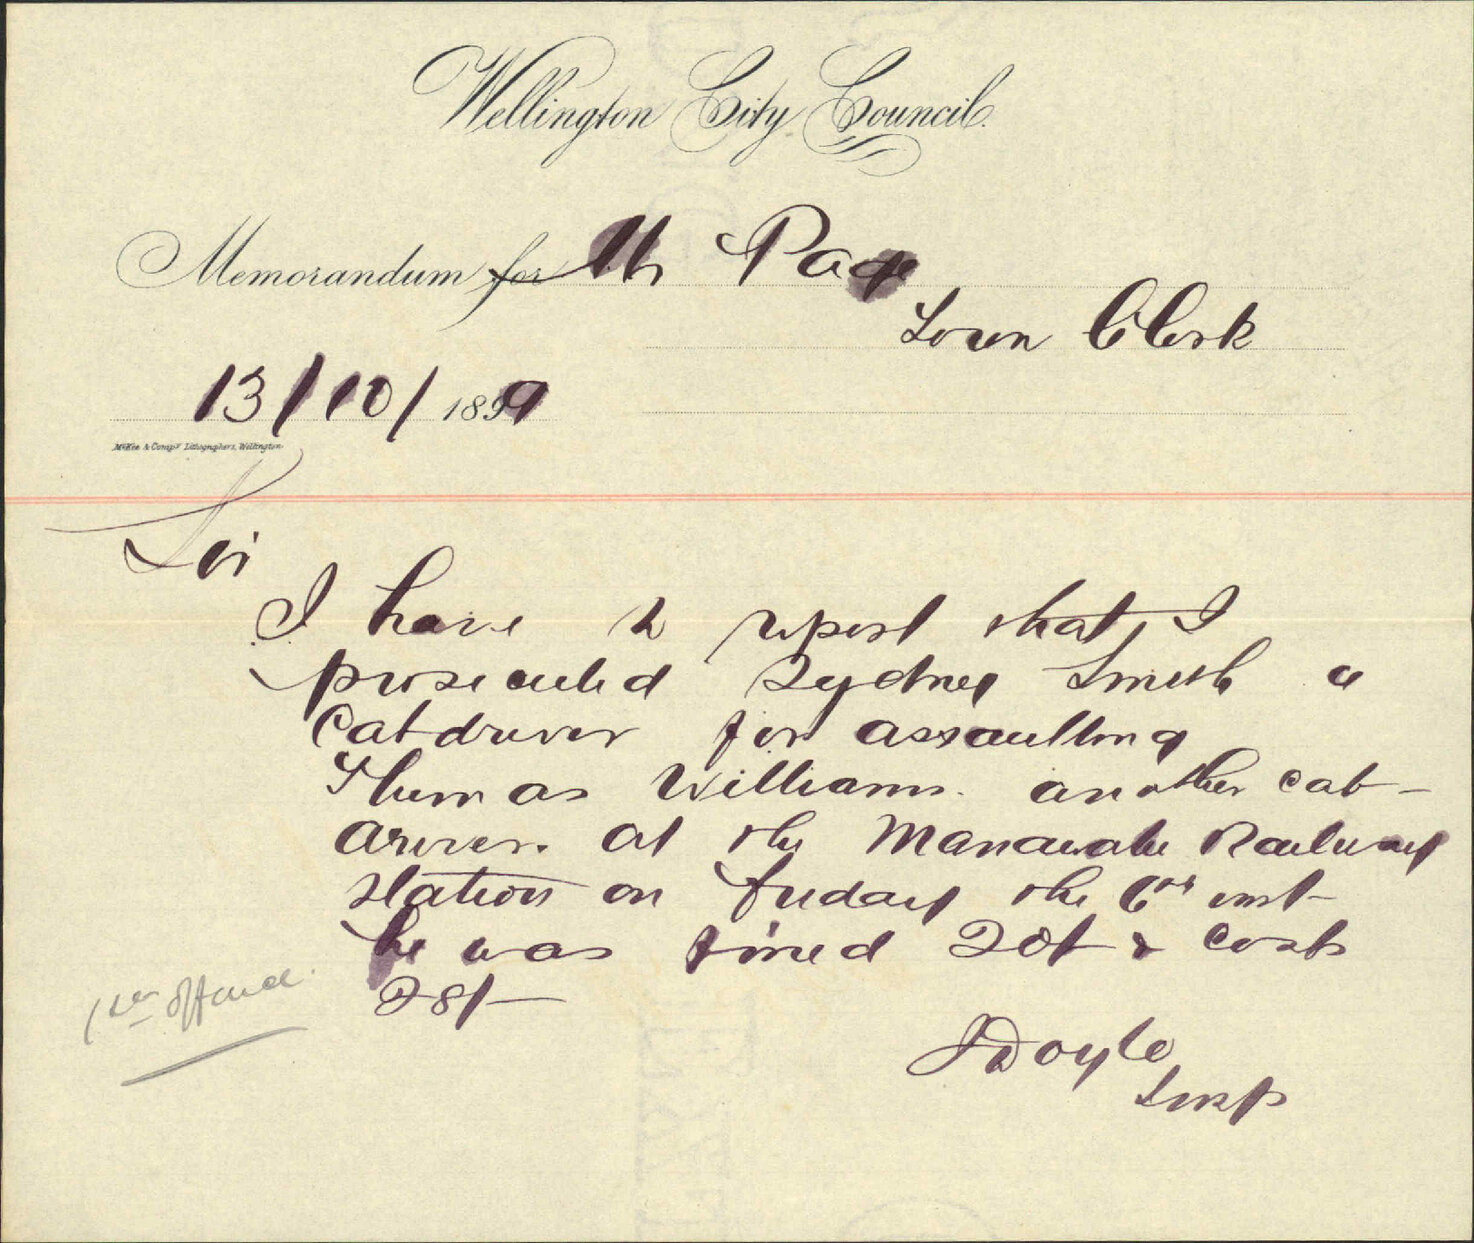 Wellington City Council.
Memorandum for Mr Page
Town Clerk
13/10/1899
McKee & Compy Lithographers, Wellington
Sir
I have to report that I
prosecuted Sydney Smith a
Cabdriver for assaulting
Thomas Williams another cab-
driver. at the Manawatu Railway
station on Friday the 6th inst
he was fined 20/- & costs
28/-
1st offence.
J Doyle
Insp